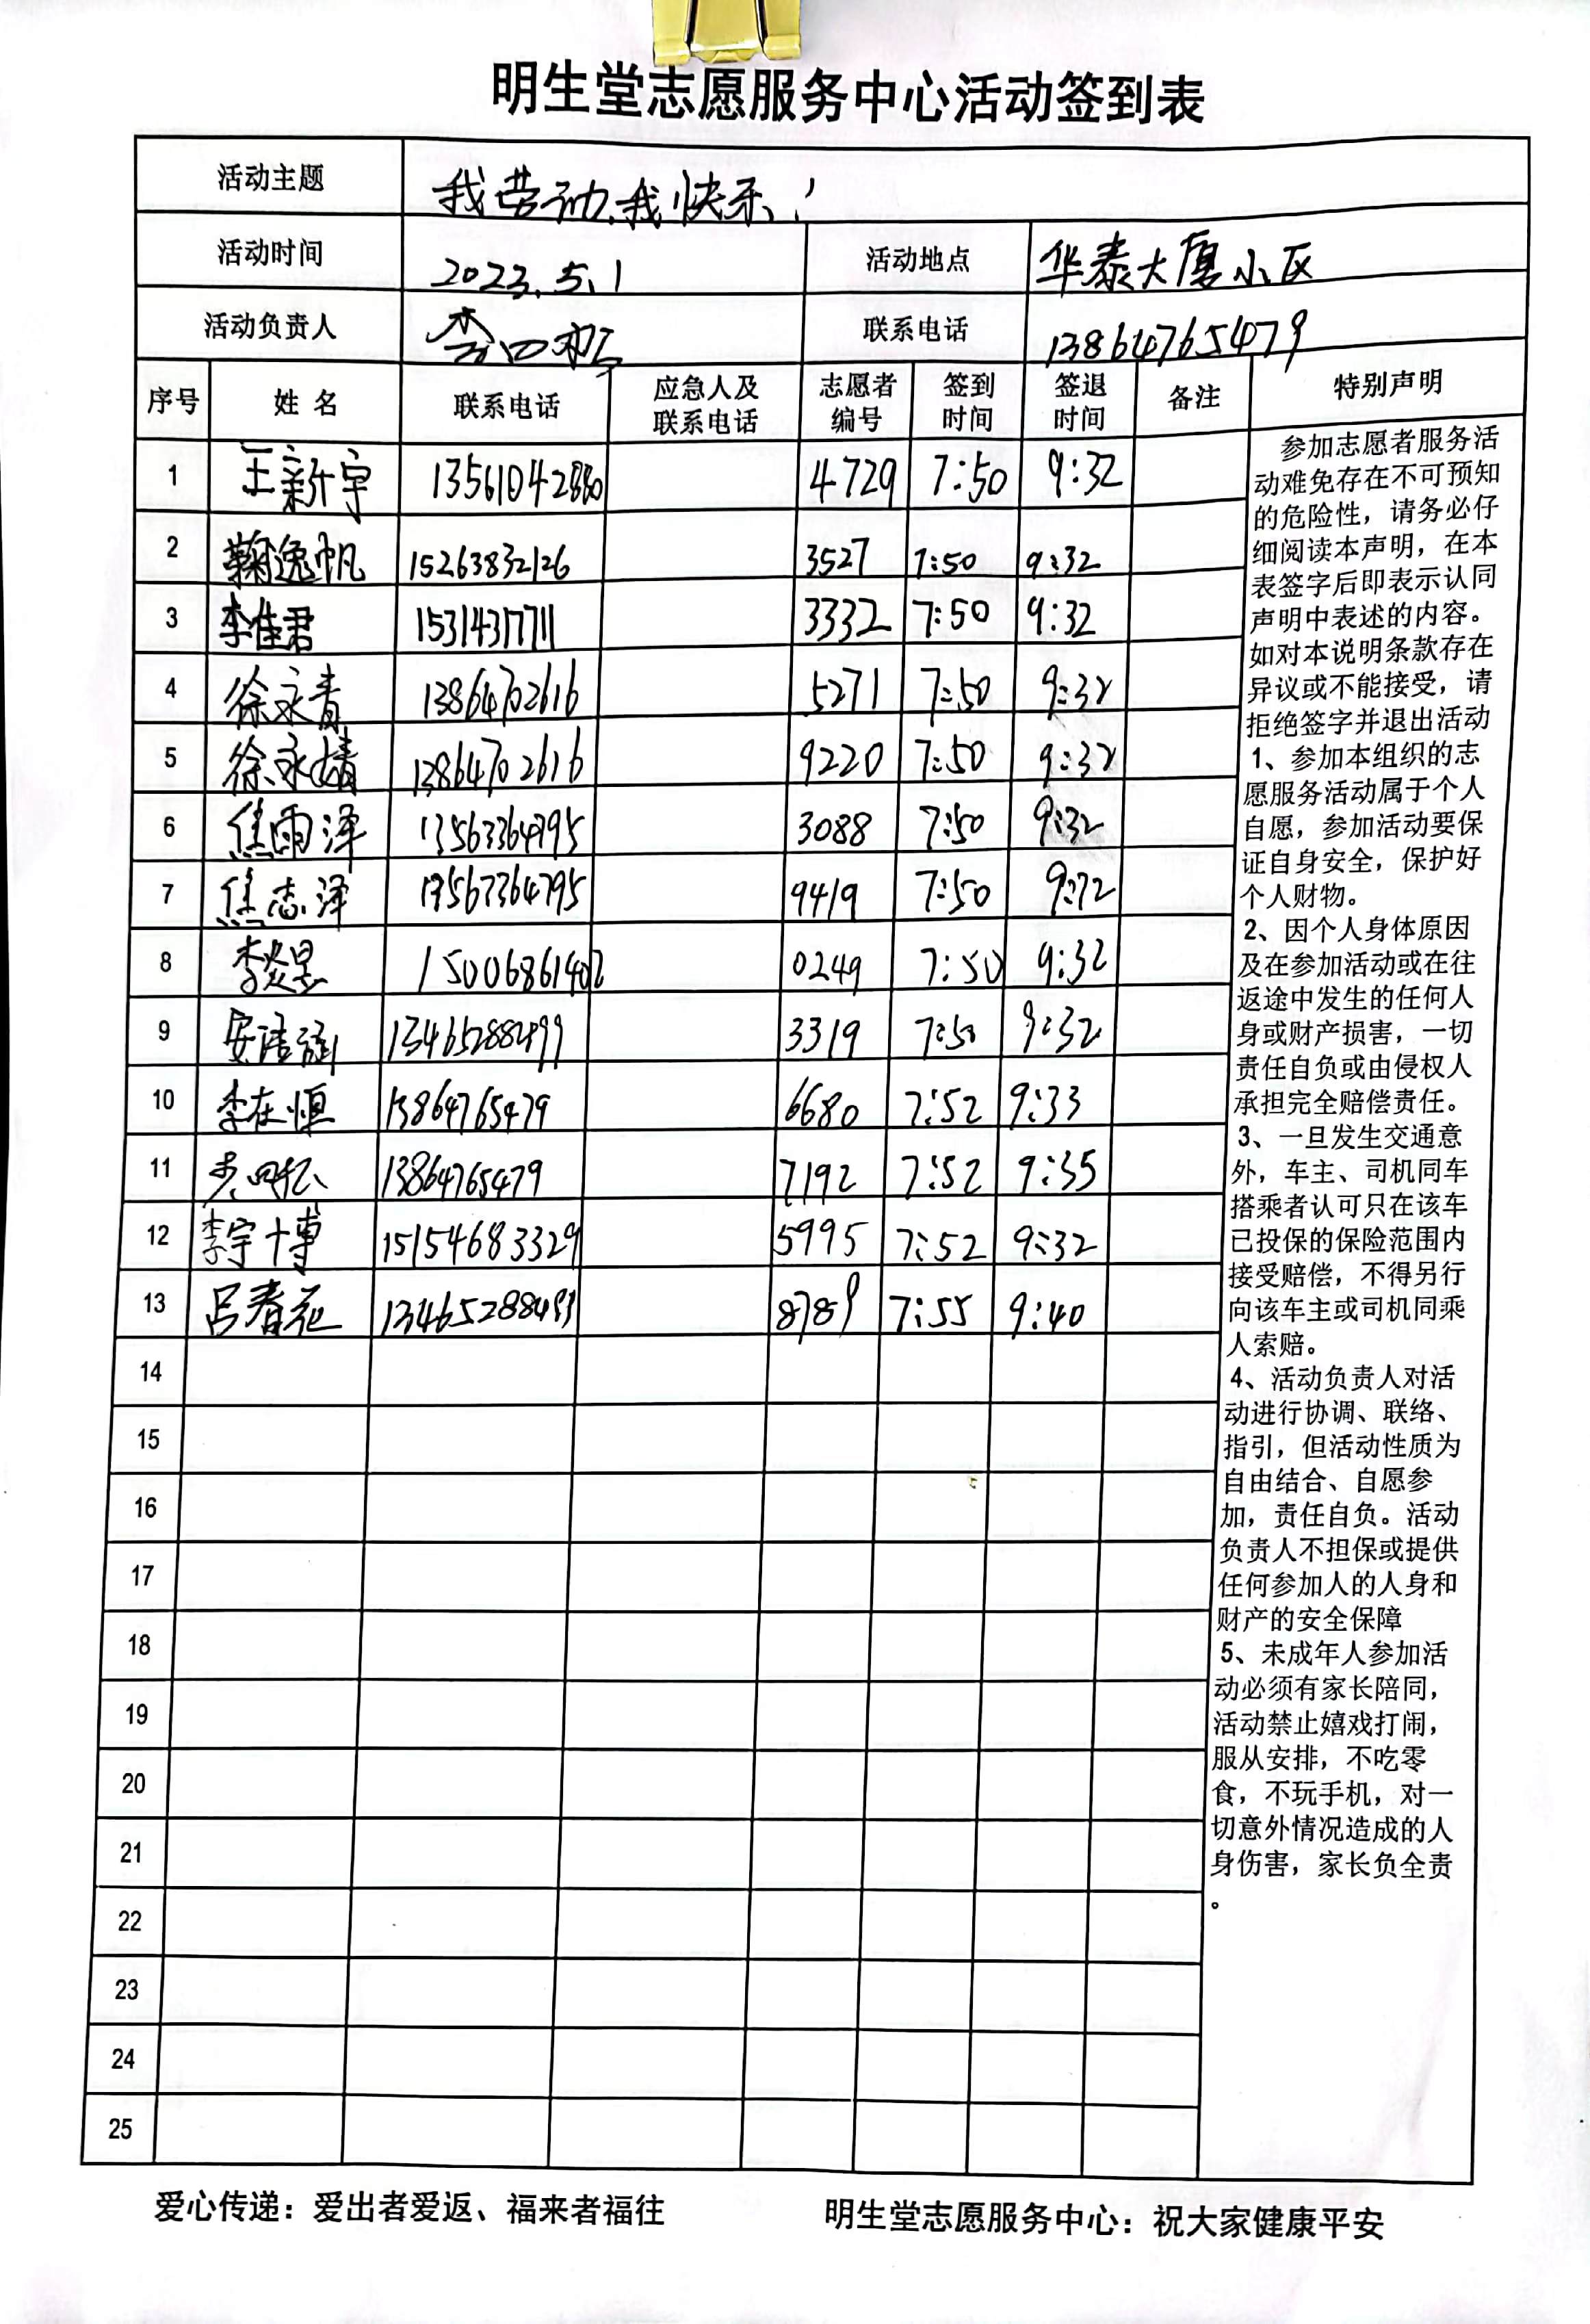 明生堂志愿服务中心活动签到表
活动主题 我劳动,我快乐!
活动时间 2023.5.1 活动地点 华泰大厦小区
活动负责人 联系电话 13864765479
序号 姓名 联系电话 应急人及联系电话 志愿者编号 签到时间 签退时间 备注 特别声明
1 王新宇 13561042880 4729 7:50 9:32
2 鞠逸帆 15263832126 3527 7:50 9:32
3 李佳君 15314317711 3332 7:50 9:32
4 徐永青 13864702616 5271 7:50 9:32
5 徐永婧 13864702616 9220 7:50 9:32
6 焦雨泽 13563364795 3088 7:50 9:32
7 焦志泽 13563364795 9419 7:50 9:32
8 0249 7:50 9:32
9 13465288499 3319 7:50 9:32
10 李在恒 13864765479 6680 7:52 9:33
11 13864765479 7192 7:52 9:35
12 李宇博 15154683329 5995 7:52 9:32
13 吕春花 8789 7:55 9:40
14
15
16
17
18
19
20
21
22
23
24
25
参加志愿者服务活
动难免存在不可预知
的危险性，请务必仔
细阅读本声明，在本
表签字后即表示认同
声明中表述的内容。
如对本说明条款存在
异议或不能接受，请
拒绝签字并退出活动
1、参加本组织的志
愿服务活动属于个人
自愿，参加活动要保
证自身安全，保护好
个人财物。
2、因个人身体原因
及在参加活动或在往
返途中发生的任何人
身或财产损害，一切
责任自负或由侵权人
承担完全赔偿责任。
3、一旦发生交通意
外，车主、司机同车
搭乘者认可只在该车
已投保的保险范围内
接受赔偿，不得另行
向该车主或司机同乘
人索赔。
4、活动负责人对活
动进行协调、联络、
指引，但活动性质为
自由结合、自愿参
加，责任自负。活动
负责人不担保或提供
任何参加人的人身和
财产的安全保障
5、未成年人参加活
动必须有家长陪同，
活动禁止嬉戏打闹，
服从安排，不吃零
食，不玩手机，对一
切意外情况造成的人
身伤害，家长负全责
。
爱心传递：爱出者爱返、福来者福往 明生堂志愿服务中心：祝大家健康平安